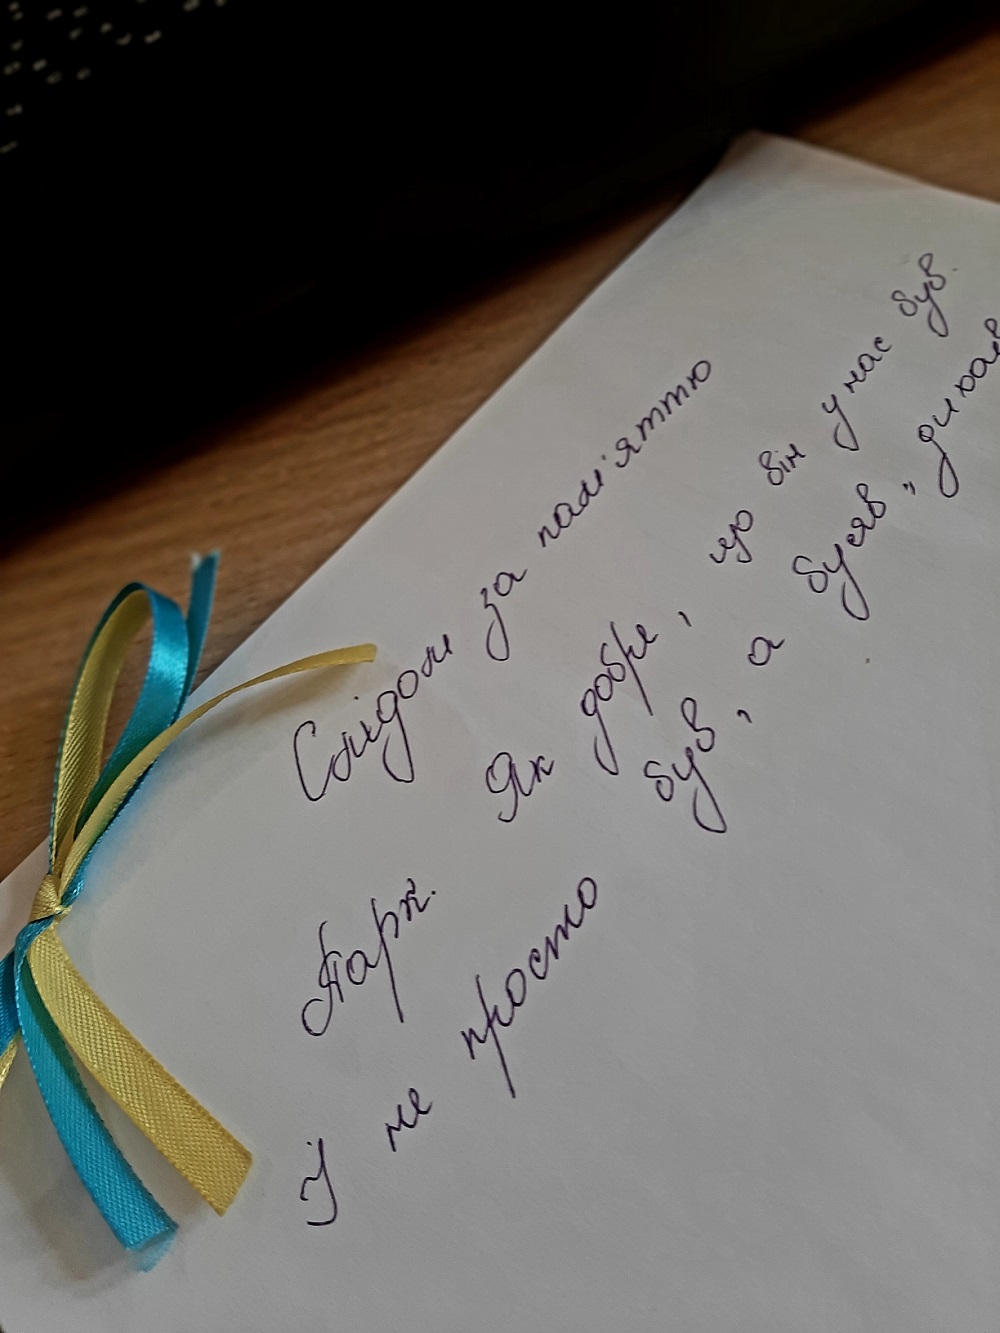 Слідом за пам'яттю
Парк. Як добре, що він у нас був.
І не просто був, а буяв, дихав